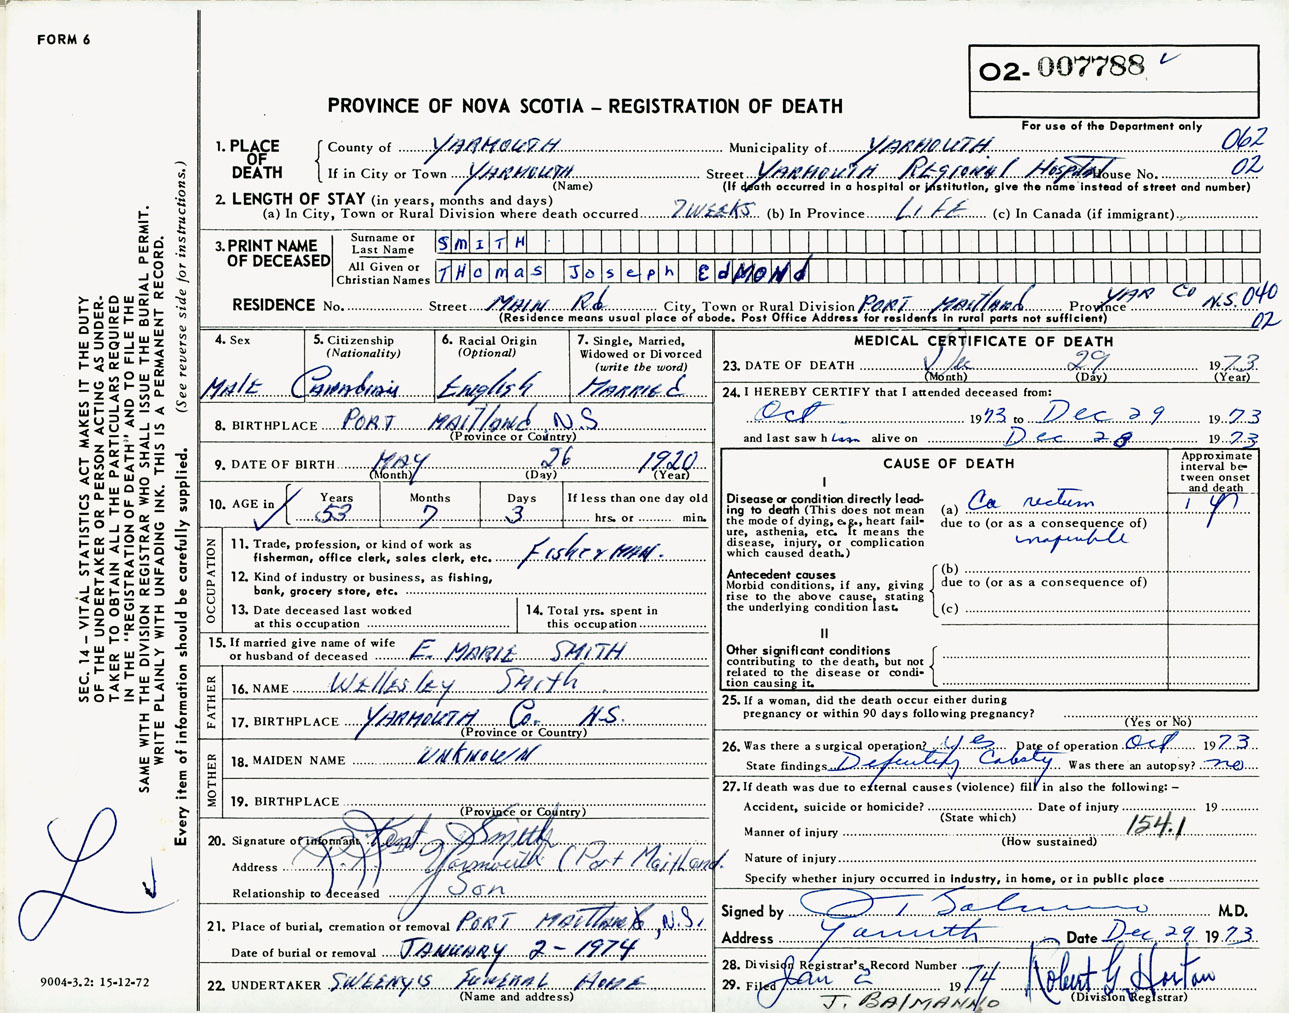 FORM 6
02-007788
PROVINCE OF NOVA SCOTIA – REGISTRATION OF DEATH
For use of the Department only
1. PLACE OF DEATH County of YARMOUTH Municipality of YARMOUTH 062
If in City or Town YARMOUTH Street YARMOUTH REGIONAL Hospital House No. 02
(Name) (If death occurred in a hospital or institution, give the name instead of street and number)
2. LENGTH OF STAY (in years, months and days)
(a) In City, Town or Rural Division where death occurred 7 WEEKS (b) In Province LIFE (c) In Canada (if immigrant)
3. PRINT NAME OF DECEASED Surname or Last Name SMITH
All Given or Christian Names THomas Joseph EdMONd
RESIDENCE No. Street MAIN Rd City, Town or Rural Division PORT MAITLAND Province YAR Co N.S. 040
(Residence means usual place of abode. Post Office Address for residents in rural parts not sufficient) 02
4. Sex MALE
5. Citizenship (Nationality) Canadian
6. Racial Origin (Optional) English
7. Single, Married, Widowed or Divorced (write the word) MARRIED
8. BIRTHPLACE PORT MAITLAND N.S
(Province or Country)
9. DATE OF BIRTH MAY 26 1920
(Month) (Day) (Year)
10. AGE in Years 53 Months 7 Days 3 If less than one day old hrs. or min.
OCCUPATION
11. Trade, profession, or kind of work as fisherman, office clerk, sales clerk, etc. FisherMAN.
12. Kind of industry or business, as fishing, bank, grocery store, etc.
13. Date deceased last worked at this occupation
14. Total yrs. spent in this occupation
15. If married give name of wife or husband of deceased E. MARIE SMITH
FATHER
16. NAME Wellesley Smith
17. BIRTHPLACE YARMOUTH Co. N.S.
(Province or Country)
MOTHER
18. MAIDEN NAME UNKNOWN
19. BIRTHPLACE
(Province or Country)
20. Signature of informant Kent Smith
Address Yarmouth (Port Maitland.
Relationship to deceased Son
21. Place of burial, cremation or removal PORT MAITLAND, N.S.
Date of burial or removal JANUARY 2 - 1974
22. UNDERTAKER SWEENY'S FUNERAL HOME
(Name and address)
MEDICAL CERTIFICATE OF DEATH
23. DATE OF DEATH Dec 29 1973
(Month) (Day) (Year)
24. I HEREBY CERTIFY that I attended deceased from:
Oct 1973 to Dec 29 1973
and last saw him alive on Dec 28 1973
CAUSE OF DEATH
Approximate interval between onset and death
I
Disease or condition directly leading to death (This does not mean the mode of dying, e.g., heart failure, asthenia, etc. It means the disease, injury, or complication which caused death.)
(a) Ca rectum 1 yr
due to (or as a consequence of)
inoperable
Antecedent causes
Morbid conditions, if any, giving rise to the above cause, stating the underlying condition last.
(b)
due to (or as a consequence of)
(c)
II
Other significant conditions
contributing to the death, but not related to the disease or condition causing it.
25. If a woman, did the death occur either during pregnancy or within 90 days following pregnancy?
(Yes or No)
26. Was there a surgical operation? yes Date of operation Oct 1973
State findings Was there an autopsy? no
27. If death was due to external causes (violence) fill in also the following: –
Accident, suicide or homicide? Date of injury 19
(State which)
Manner of injury 154.1
(How sustained)
Nature of injury
Specify whether injury occurred in industry, in home, or in public place
Signed by M.D.
Address Yarmouth Date Dec 29 1973
28. Division Registrar's Record Number
29. Filed Jan 2 1974 Robert G. Horton
(Division Registrar)
J. BALMANNO
SEC. 14 – VITAL STATISTICS ACT MAKES IT THE DUTY
OF THE UNDERTAKER OR PERSON ACTING AS UNDER-
TAKER TO OBTAIN ALL THE PARTICULARS REQUIRED
IN THE "REGISTRATION OF DEATH" AND TO FILE THE
SAME WITH THE DIVISION REGISTRAR WHO SHALL ISSUE THE BURIAL PERMIT.
WRITE PLAINLY WITH UNFADING INK. THIS IS A PERMANENT RECORD.
Every item of information should be carefully supplied. (See reverse side for instructions.)
9004-3.2: 15-12-72